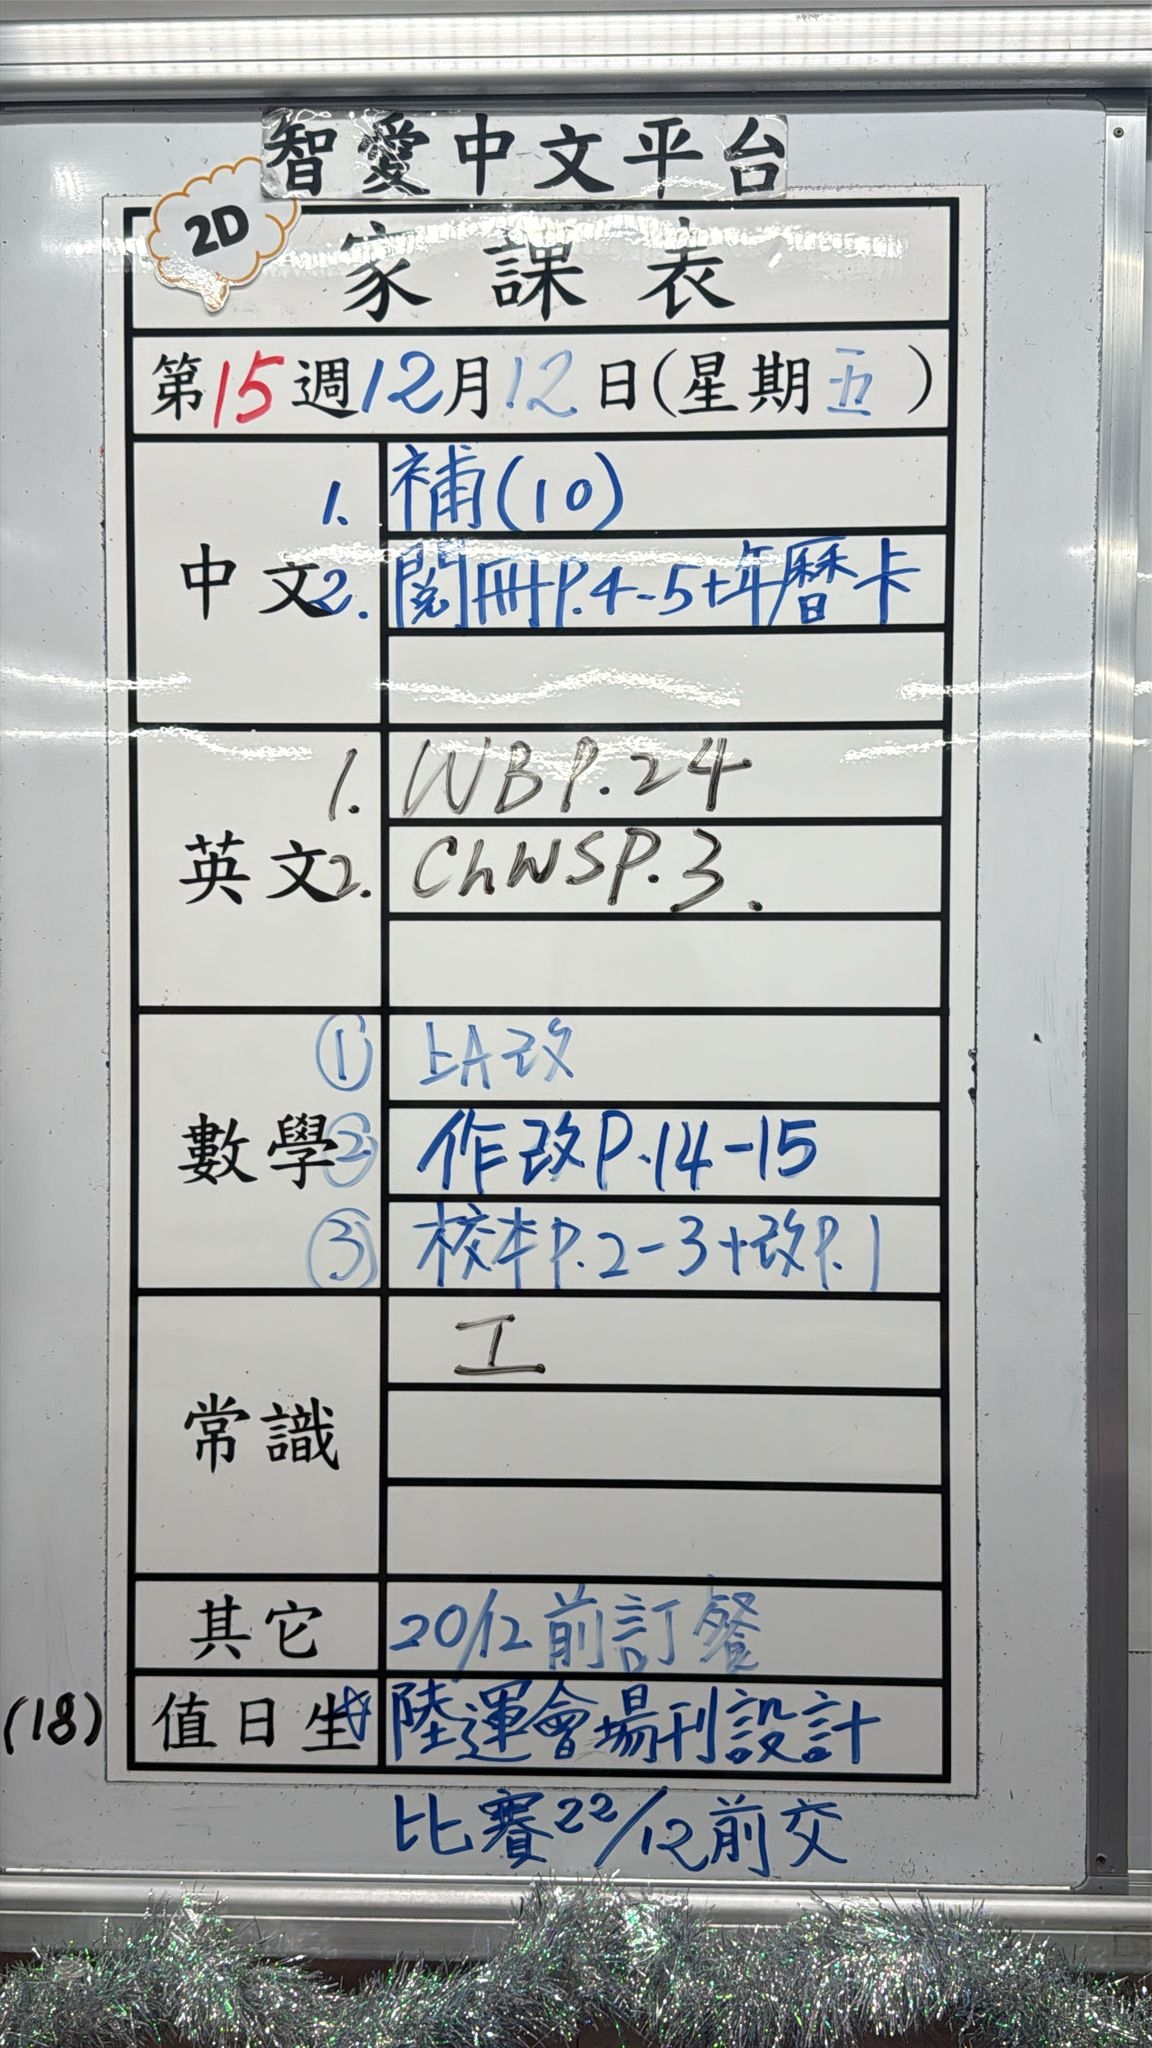 智愛中文平台
2D
家課表
第15週12月12日(星期五)
中文
1. 補(10)
2. 閱冊P.4-5+年曆卡
英文
1. WBP.24
2. ChWSP.3.
數學
① 上A改
② 作改P.14-15
③ 校本P.2-3+改P.1
常識
工
其它
20/12前訂餐
(18) 值日生
陸運會場刊設計
比賽22/12前交